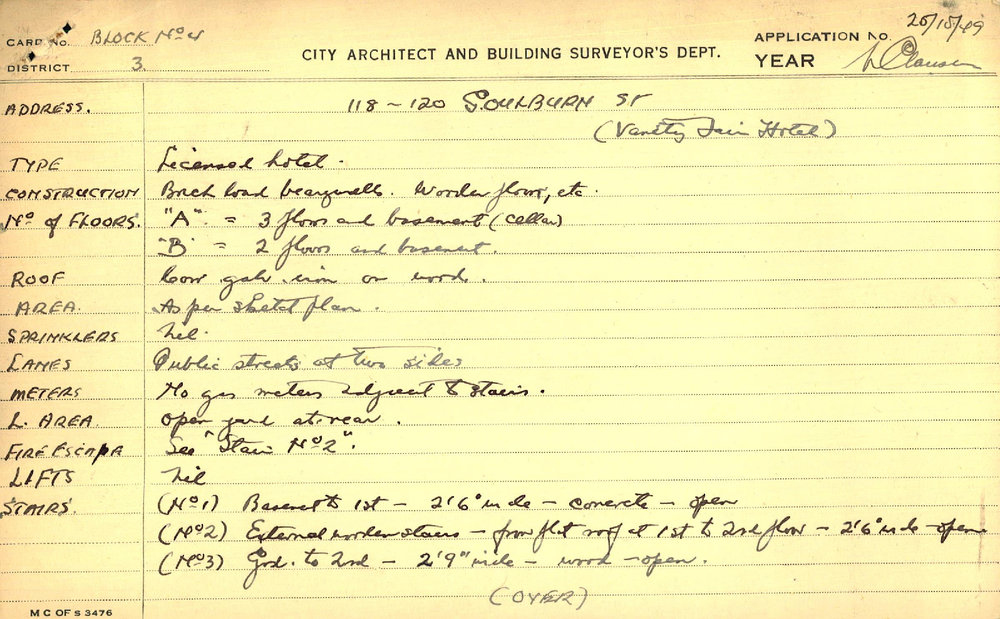 25/10/49
CARD No. BLOCK No 4
CITY ARCHITECT AND BUILDING SURVEYOR'S DEPT.
APPLICATION No.
DISTRICT 3.
YEAR
ADDRESS. 118 - 120 GOULBURN ST
(Vanity Fair Hotel)
TYPE Licensed hotel.
CONSTRUCTION Brick load bearg walls. Wooden floors, etc.
No of FLOORS. "A" = 3 floors and basement (cellar)
"B" = 2 floors and basement.
ROOF Corr galv. iron on wood.
AREA. As per sketch plan.
SPRINKLERS Nil.
LANES Public streets at two sides
METERS No gas meters adjacent to stairs.
L. AREA. Open yard at rear.
FIRE ESCAPE See "Stair No 2".
LIFTS Nil
STAIRS. (No 1) Basemt to 1st - 2'6" wide - concrete - open
(No 2) External wooden stairs - from flat roof at 1st to 2nd floor - 2'6" wide - open
(No 3) Grd. to 2nd - 2'9" wide - wood - open.
(OVER)
M C OF S 3476